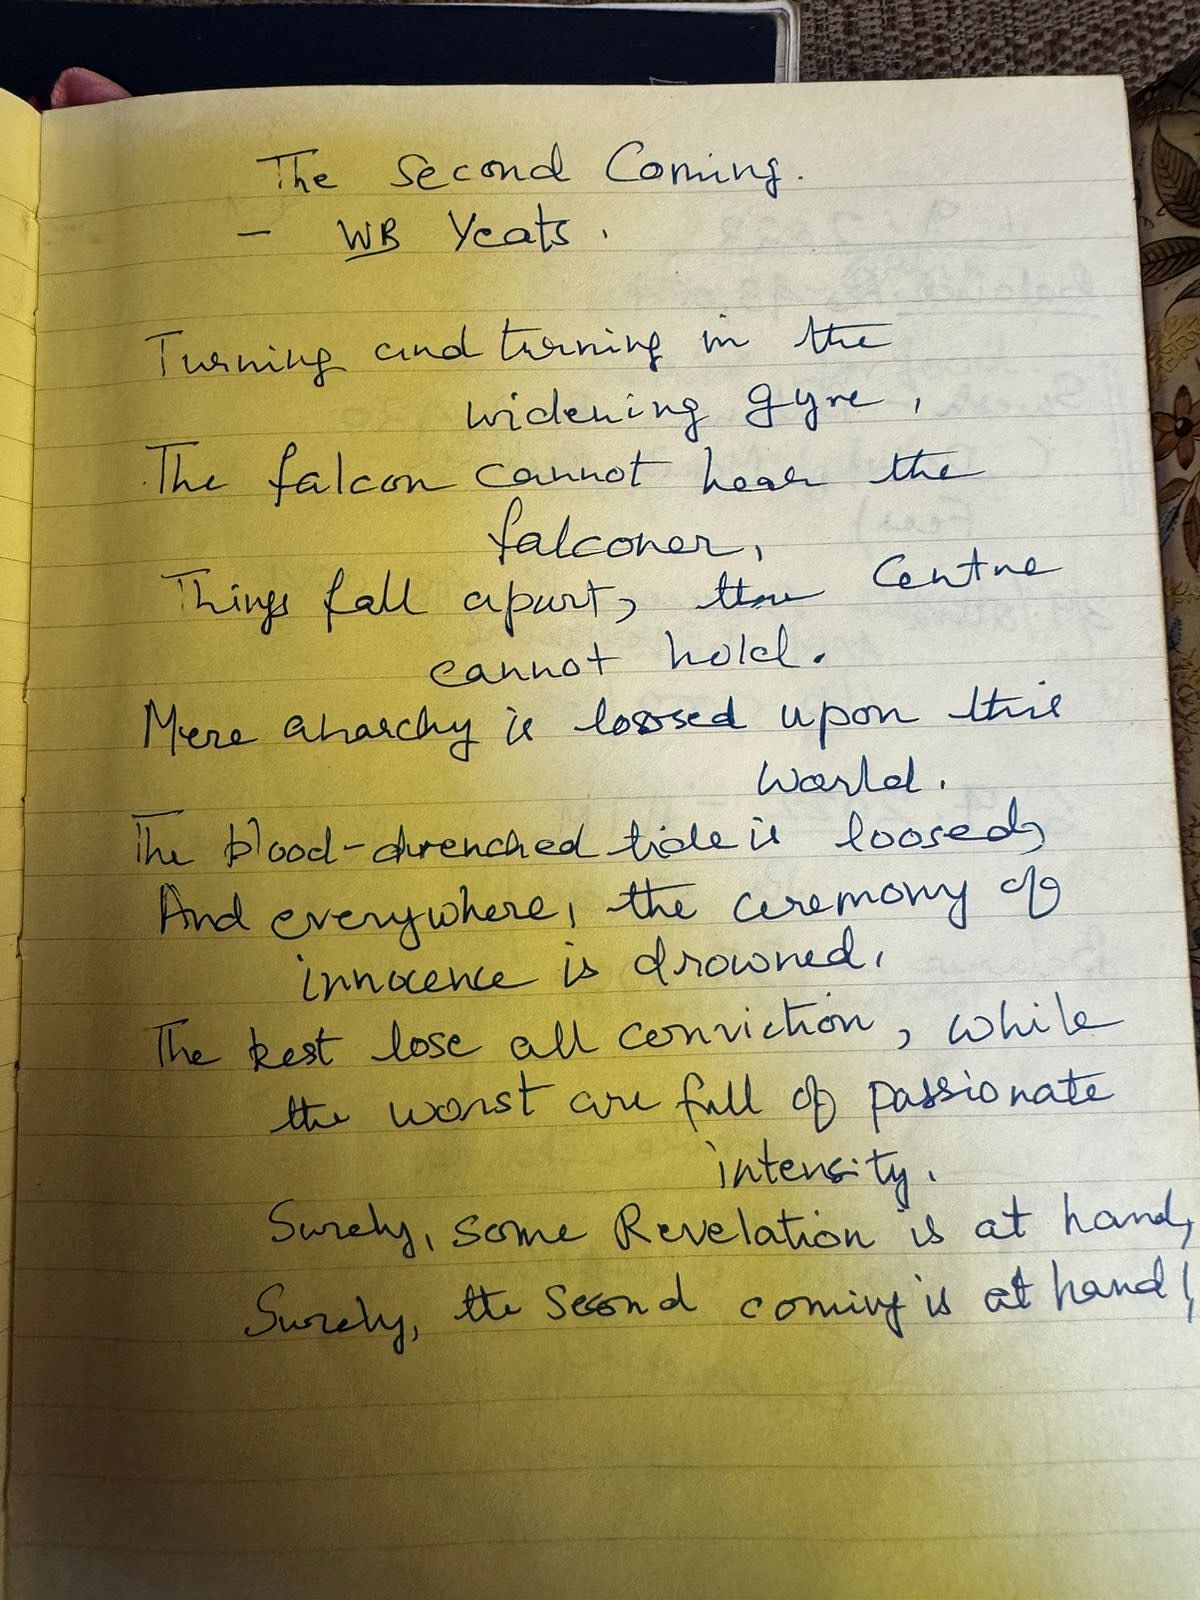 The Second Coming.
- WB Yeats.
Turning and turning in the
widening gyre,
The falcon cannot hear the
falconer,
Things fall apart, the centre
cannot hold.
Mere anarchy is loosed upon this
world.
The blood-drenched tide is loosed,
And everywhere, the ceremony of
innocence is drowned.
The best lose all conviction, while
the worst are full of passionate
intensity.
Surely, some Revelation is at hand,
Surely, the Second coming is at hand!